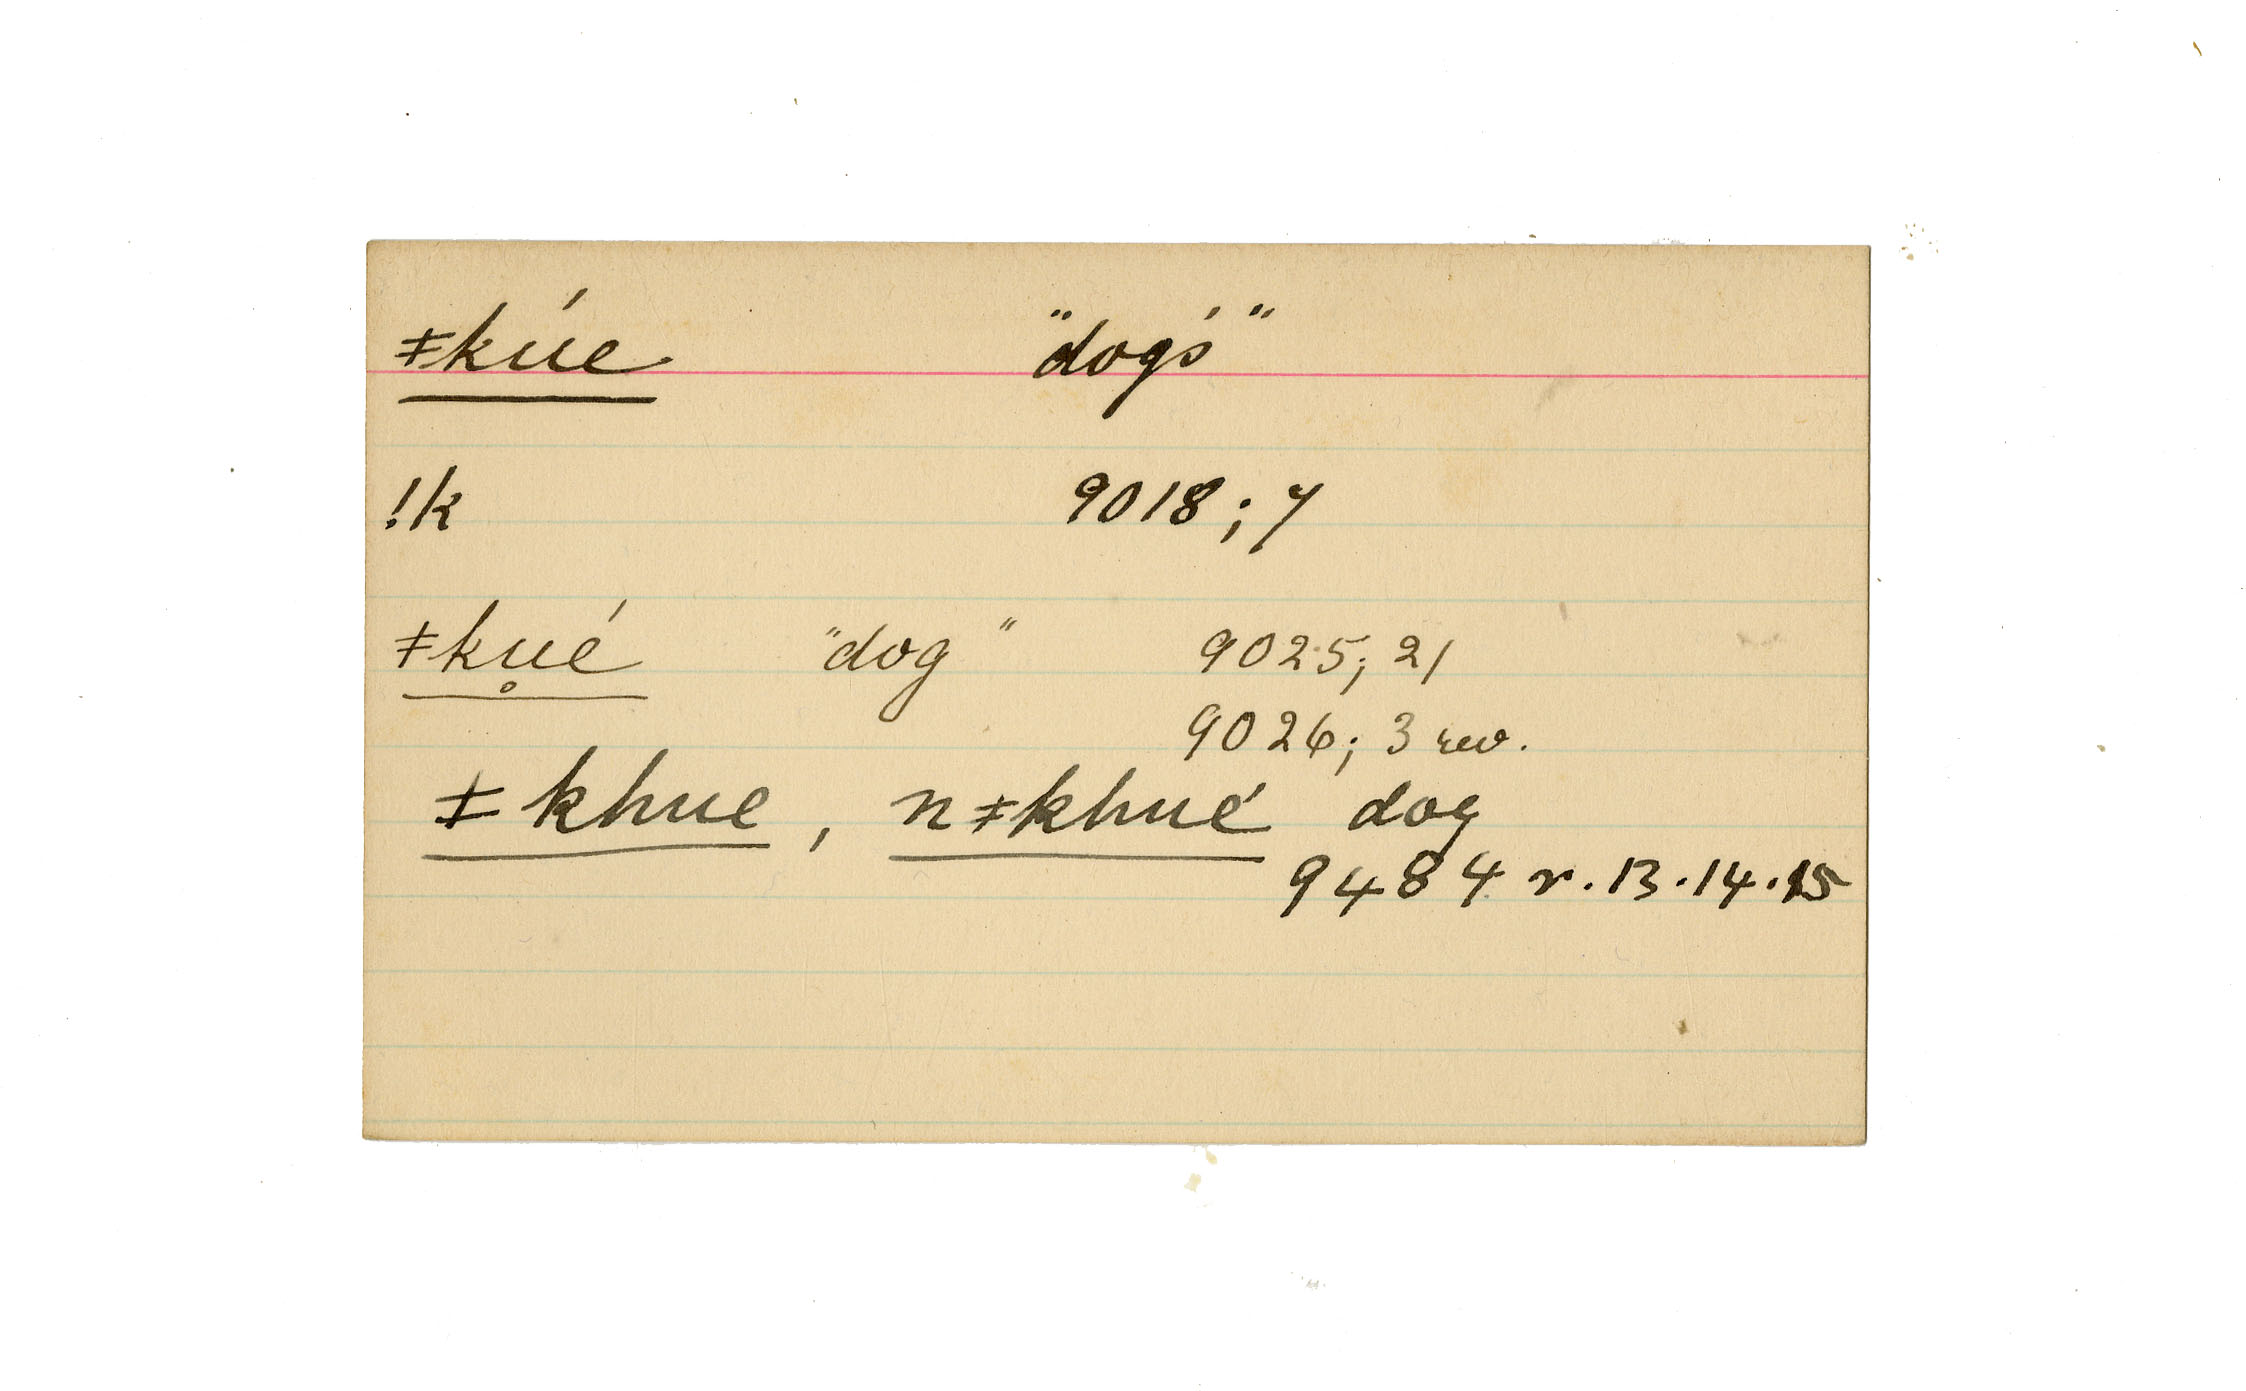 ǂkúe "dog's"
!k 9018; 7
ǂku̥é "dog" 9025; 21
9026; 3 rev.
ǂkhue, nǂkhué dog
9484 r. 13. 14. 15